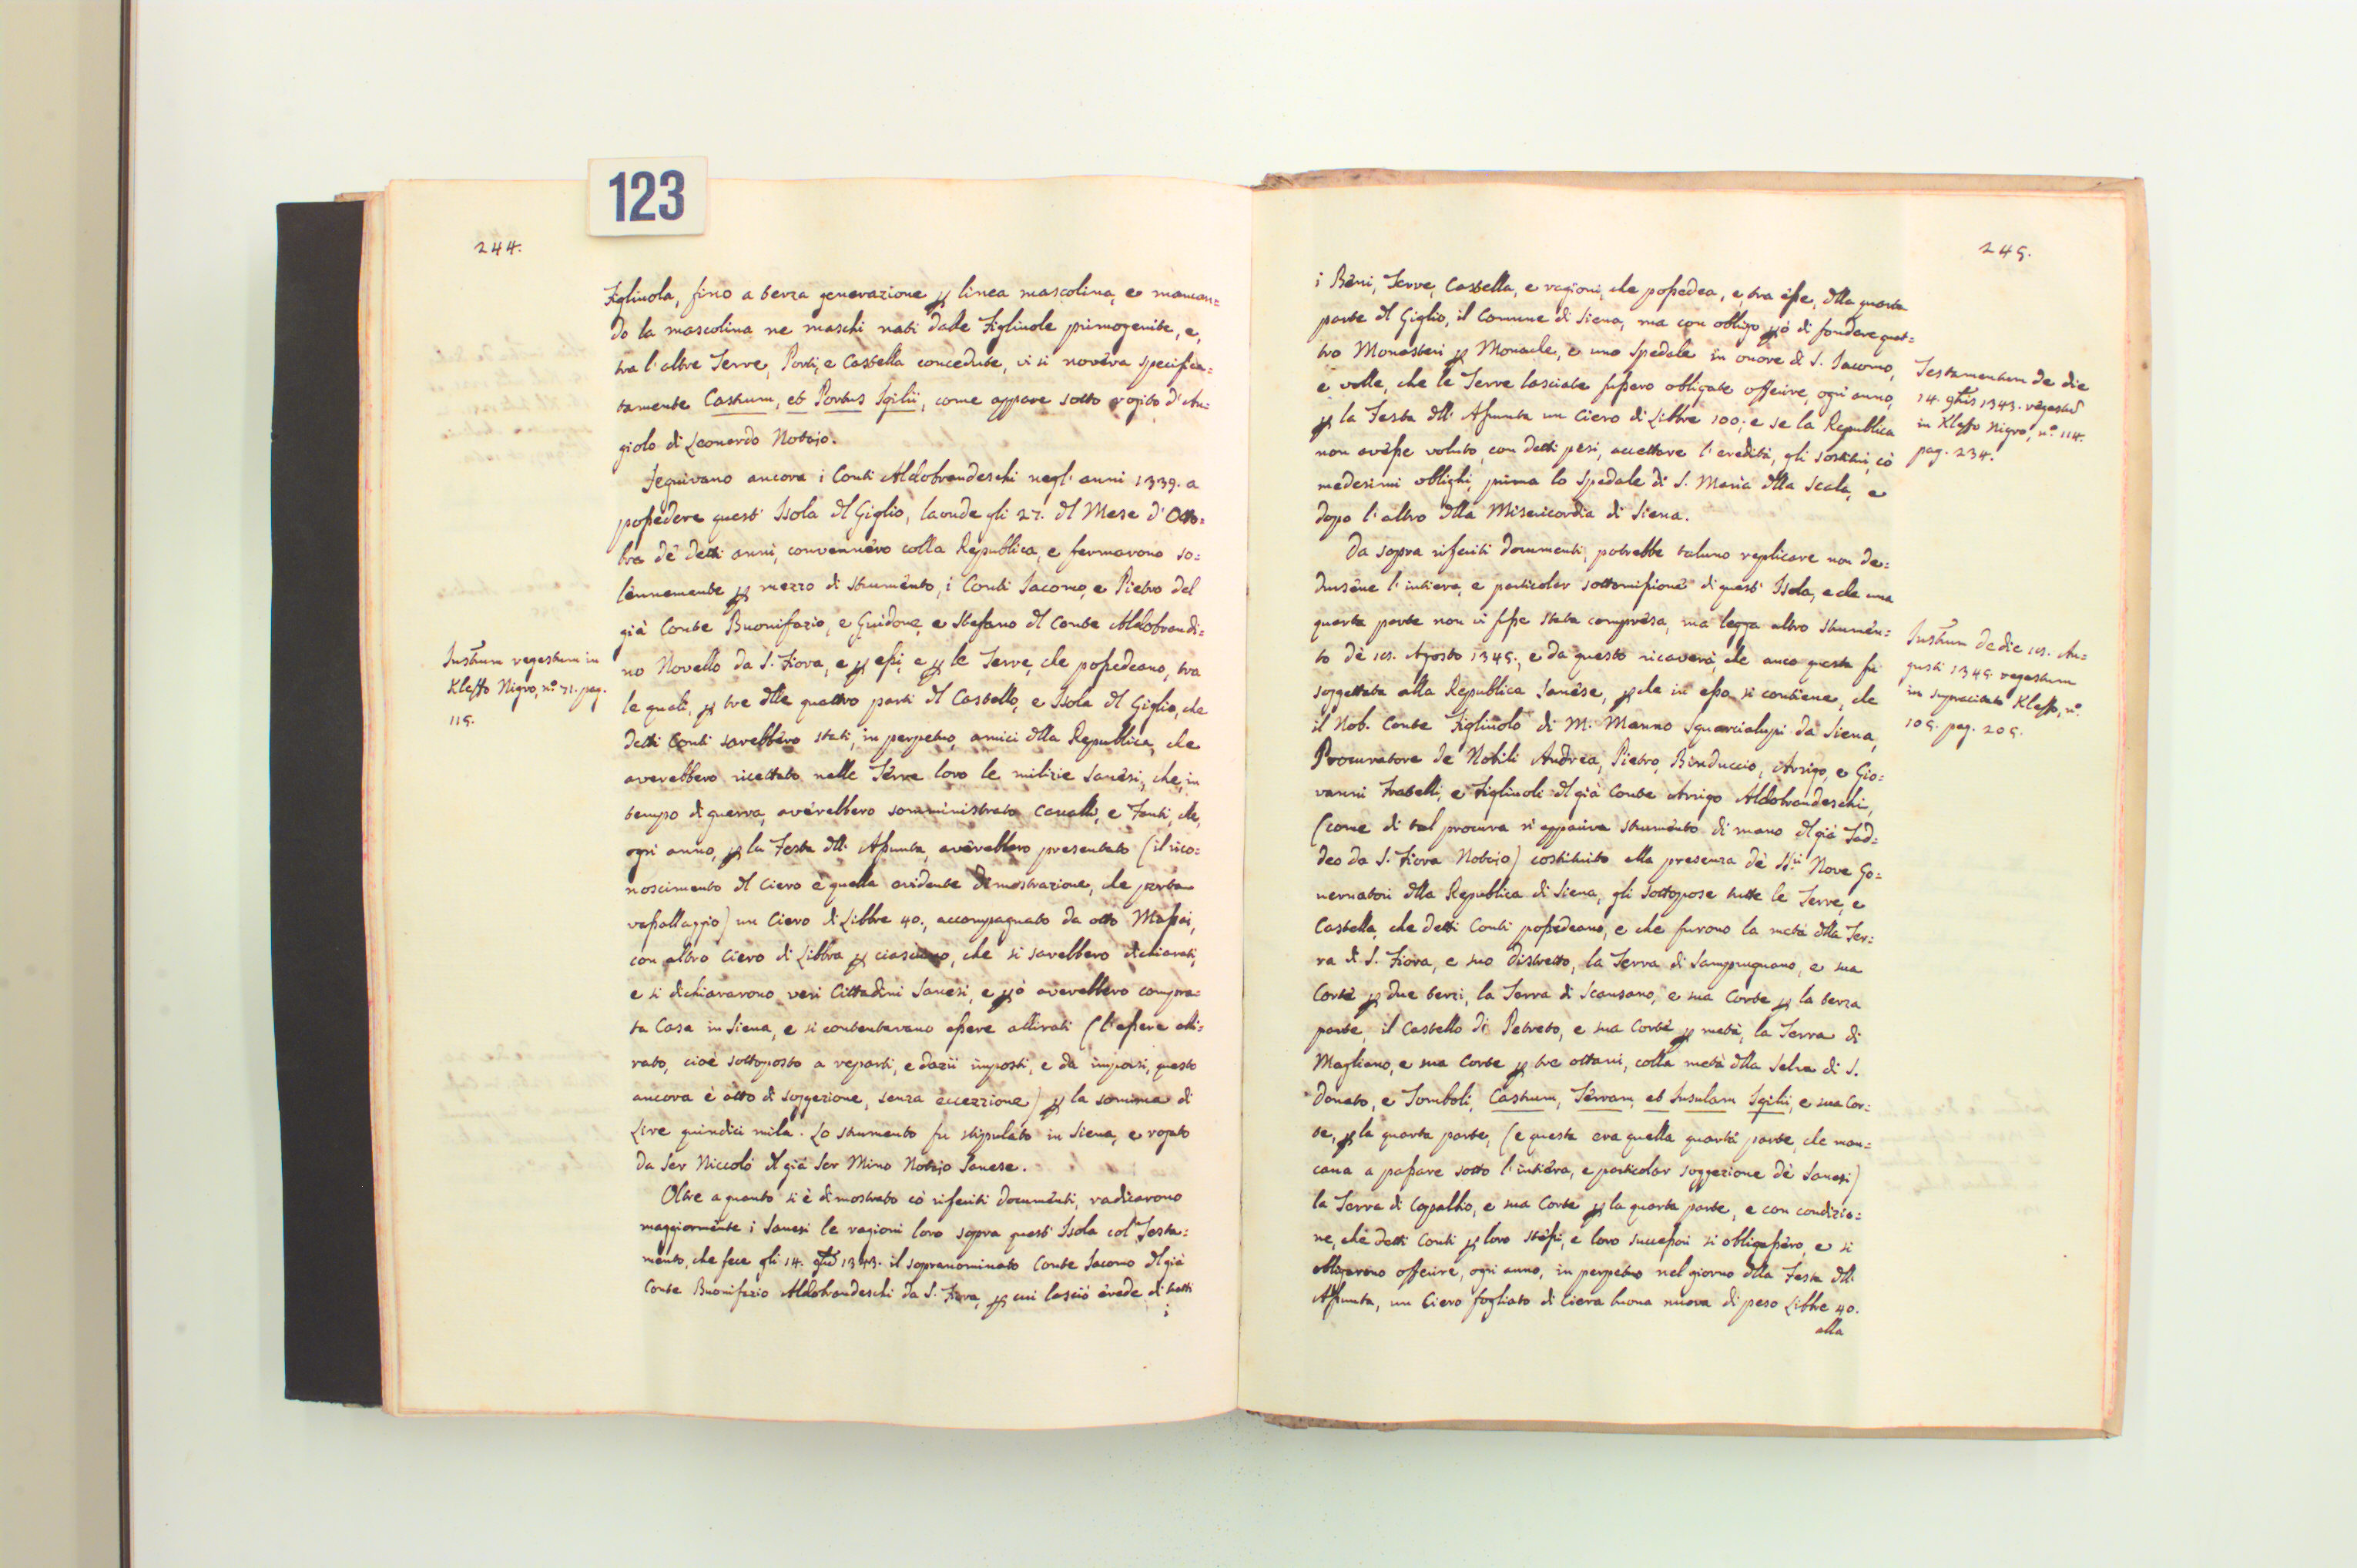 123
244.
Figliuola, fino a terza generazione p linea mascolina, e mancan=
do la mascolina ne maschi nati dalle Figliuole primogenite, e,
tra l'altre Terre, Porti, e Castella concedute, vi si novera specifica=
tamente Castrum, et Portus Igilii, come appare sotto rogito d'An=
giolo di Leonardo Notaio.
Seguivano ancora i Conti Aldobrandeschi negl'anni 1339. a
possedere quest'Isola dl Giglio, laonde gli 27. dl Mese d'Otto=
bre dè detti anni, convennero colla Republica, e fermarono so=
lennemente p mezzo di strumento, i Conti Iacomo, e Pietro del
già Conte Buonifazio, e Guidone, e Stefano dl Conte Aldobrandi=
no Novello da S. Fiora, e p essi, e p le Terre, che possedeano, tra
le quali, p tre dlle quattro parti dl Castello, e Isola dl Giglio, che
detti Conti sarebbero stati, in perpetuo, amici dlla Republica, che
averebbero ricettato nelle Terre loro le milizie sanesi, che, in
tempo di guerra, averebbero somministrato Cavalli, e Fanti, che,
ogni anno, p la Festa dll' Assunta, averebbero presentato (il rico=
noscimento dl Ciero è quella evidente dimostrazione, che porta
vassallaggio) un Ciero di Libbre 40., accompagnato da otto Massai,
con altro Ciero di Libbra p ciascuno, che si sarebbero dichiarati,
e si dichiararono veri Cittadini Sanesi, e pò averebbero compra=
ta Casa in Siena, e si contentavano essere allirati (l'essere alli=
rato, cioè sottoposto a reparti, e dazii imposti, e da imporsi, questo
ancora è atto di soggezione, senza eccezzione) p la somma di
Lire quindici mila. Lo strumento fu stipulato in Siena, e rogato
da Ser Niccolò dl già Ser Mino Notaio Sanese.
Oltre a quanto si è dimostrato cò riferiti documenti, radicarono
maggiormente i Sanesi le ragioni loro sopra quest'Isola col Testa=
mento, che fece gli 14. 9bre 1343. il sopranominato Conte Iacomo dl già
Conte Buonifazio Aldobrandeschi da S. Fiora, p cui lasciò erede di tutti
i
Instrum regestum in
Kleffo Nigro, n.° 71. pag.
115.
245.
i Beni, Terre, Castella, e ragioni, che possedea, e, tra esse, dlla quarta
parte dl Giglio, il Comune di Siena, ma con obligo pò di fondare quat=
tro Monasteri p Monache, e uno Spedale in onore di S. Iacomo,
e volle, che le Terre lasciate fussero obligate offerire, ogni anno,
p la Festa dll' Assunta un Ciero di Libbre 100; e se la Republica
non avesse voluto, con detti pesi, accettare l'eredità, gli sostituì, cò
medesimi oblighi, prima lo Spedale di S. Maria dlla Scala, e
dopo l'altro dlla Misericordia di Siena.
Da sopra riferiti documenti, potrebbe taluno replicare non de=
dursene l'intiera, e particolar sottomissione di quest'Isola, e che una
quarta parte non vi fosse stata compresa, ma legga altro strumen=
to dè 10. Agosto 1345., e da questo ricaverà, che anco questa fu
soggettata alla Republica Sanese, p che in esso si contiene, che
il Nob. Conte Figliuolo di M. Manno Squarcialupi da Siena,
Procuratore de Nobili Andrea, Pietro, Binduccio, Arrigo, e Gio=
vanni Fratelli, e Figliuoli dl già Conte Arrigo Aldobrandeschi,
(come di tal procura n'appariva strumento di mano dl già Tad=
deo da S. Fiora Notaio) costituito alla presenza dè SS.ri Nove Go=
vernatori dlla Republica di Siena, gli sottopose tutte le Terre, e
Castella, che detti Conti possedeano, e che furono la metà dlla Ter=
ra di S. Fiora, e suo distretto, la Terra di Sanprugnano, e sua
Corte p due terzi, la Terra di Scansano, e sua Corte p la terza
parte, il Castello di Petreto, e sua Corte p metà, la Terra di
Magliano, e sua Corte p tre ottavi, colla metà dlla Selva di S.
Donato, e Tomboli, Castrum, Terram, et Insulam Igilii, e sua Cor=
te, p la quarta parte, (e questa era quella quarta parte, che man=
cava a passare sotto l'intiera, e particolar soggezione dè Sanesi)
la Terra di Capalbio, e sua Corte p la quarta parte, e con condizio=
ne, che detti Conti p loro stessi, e loro successori si obligassero, e si
obligarono offerire, ogni anno, in perpetuo nel giorno dlla Festa dll'
Assunta, un Ciero fogliato di Ciera buona nuova di peso Libbre 40.
alla
Testamentum de die
14. 9bris 1343. regestu
in Kleffo Nigro, n.° 114.
pag. 234.
Instrum de die 10. Au=
gusti 1345. regestum
in supracitato Kleffo, n.°
105. pag. 205.